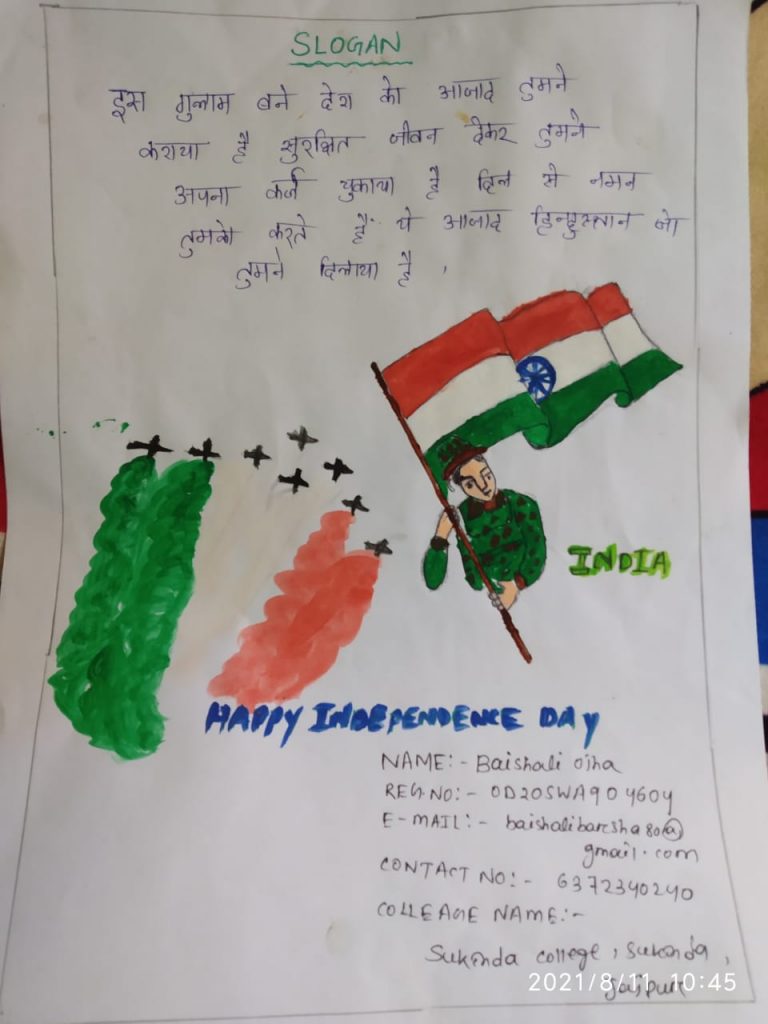 SLOGAN
इस गुलाम बने देश को आजाद तुमने
कराया है सुरक्षित जीवन देकर तुमने
अपना कर्ज चुकाया है दिल से नमन
तुमको करते हैं ये आजाद हिन्दुस्तान जो
तुमने दिलाया है ,
INDIA
HAPPY INDEPENDENCE DAY
NAME:- Baishali ojha
REG.NO:- OD20SWA904604
E-MAIL:- baishalibarsha80@
gmail.com
CONTACT NO:- 6372340240
COLLEAGE NAME:-
Sukinda college, Sukinda,
Jajpur
2021/8/11 10:45